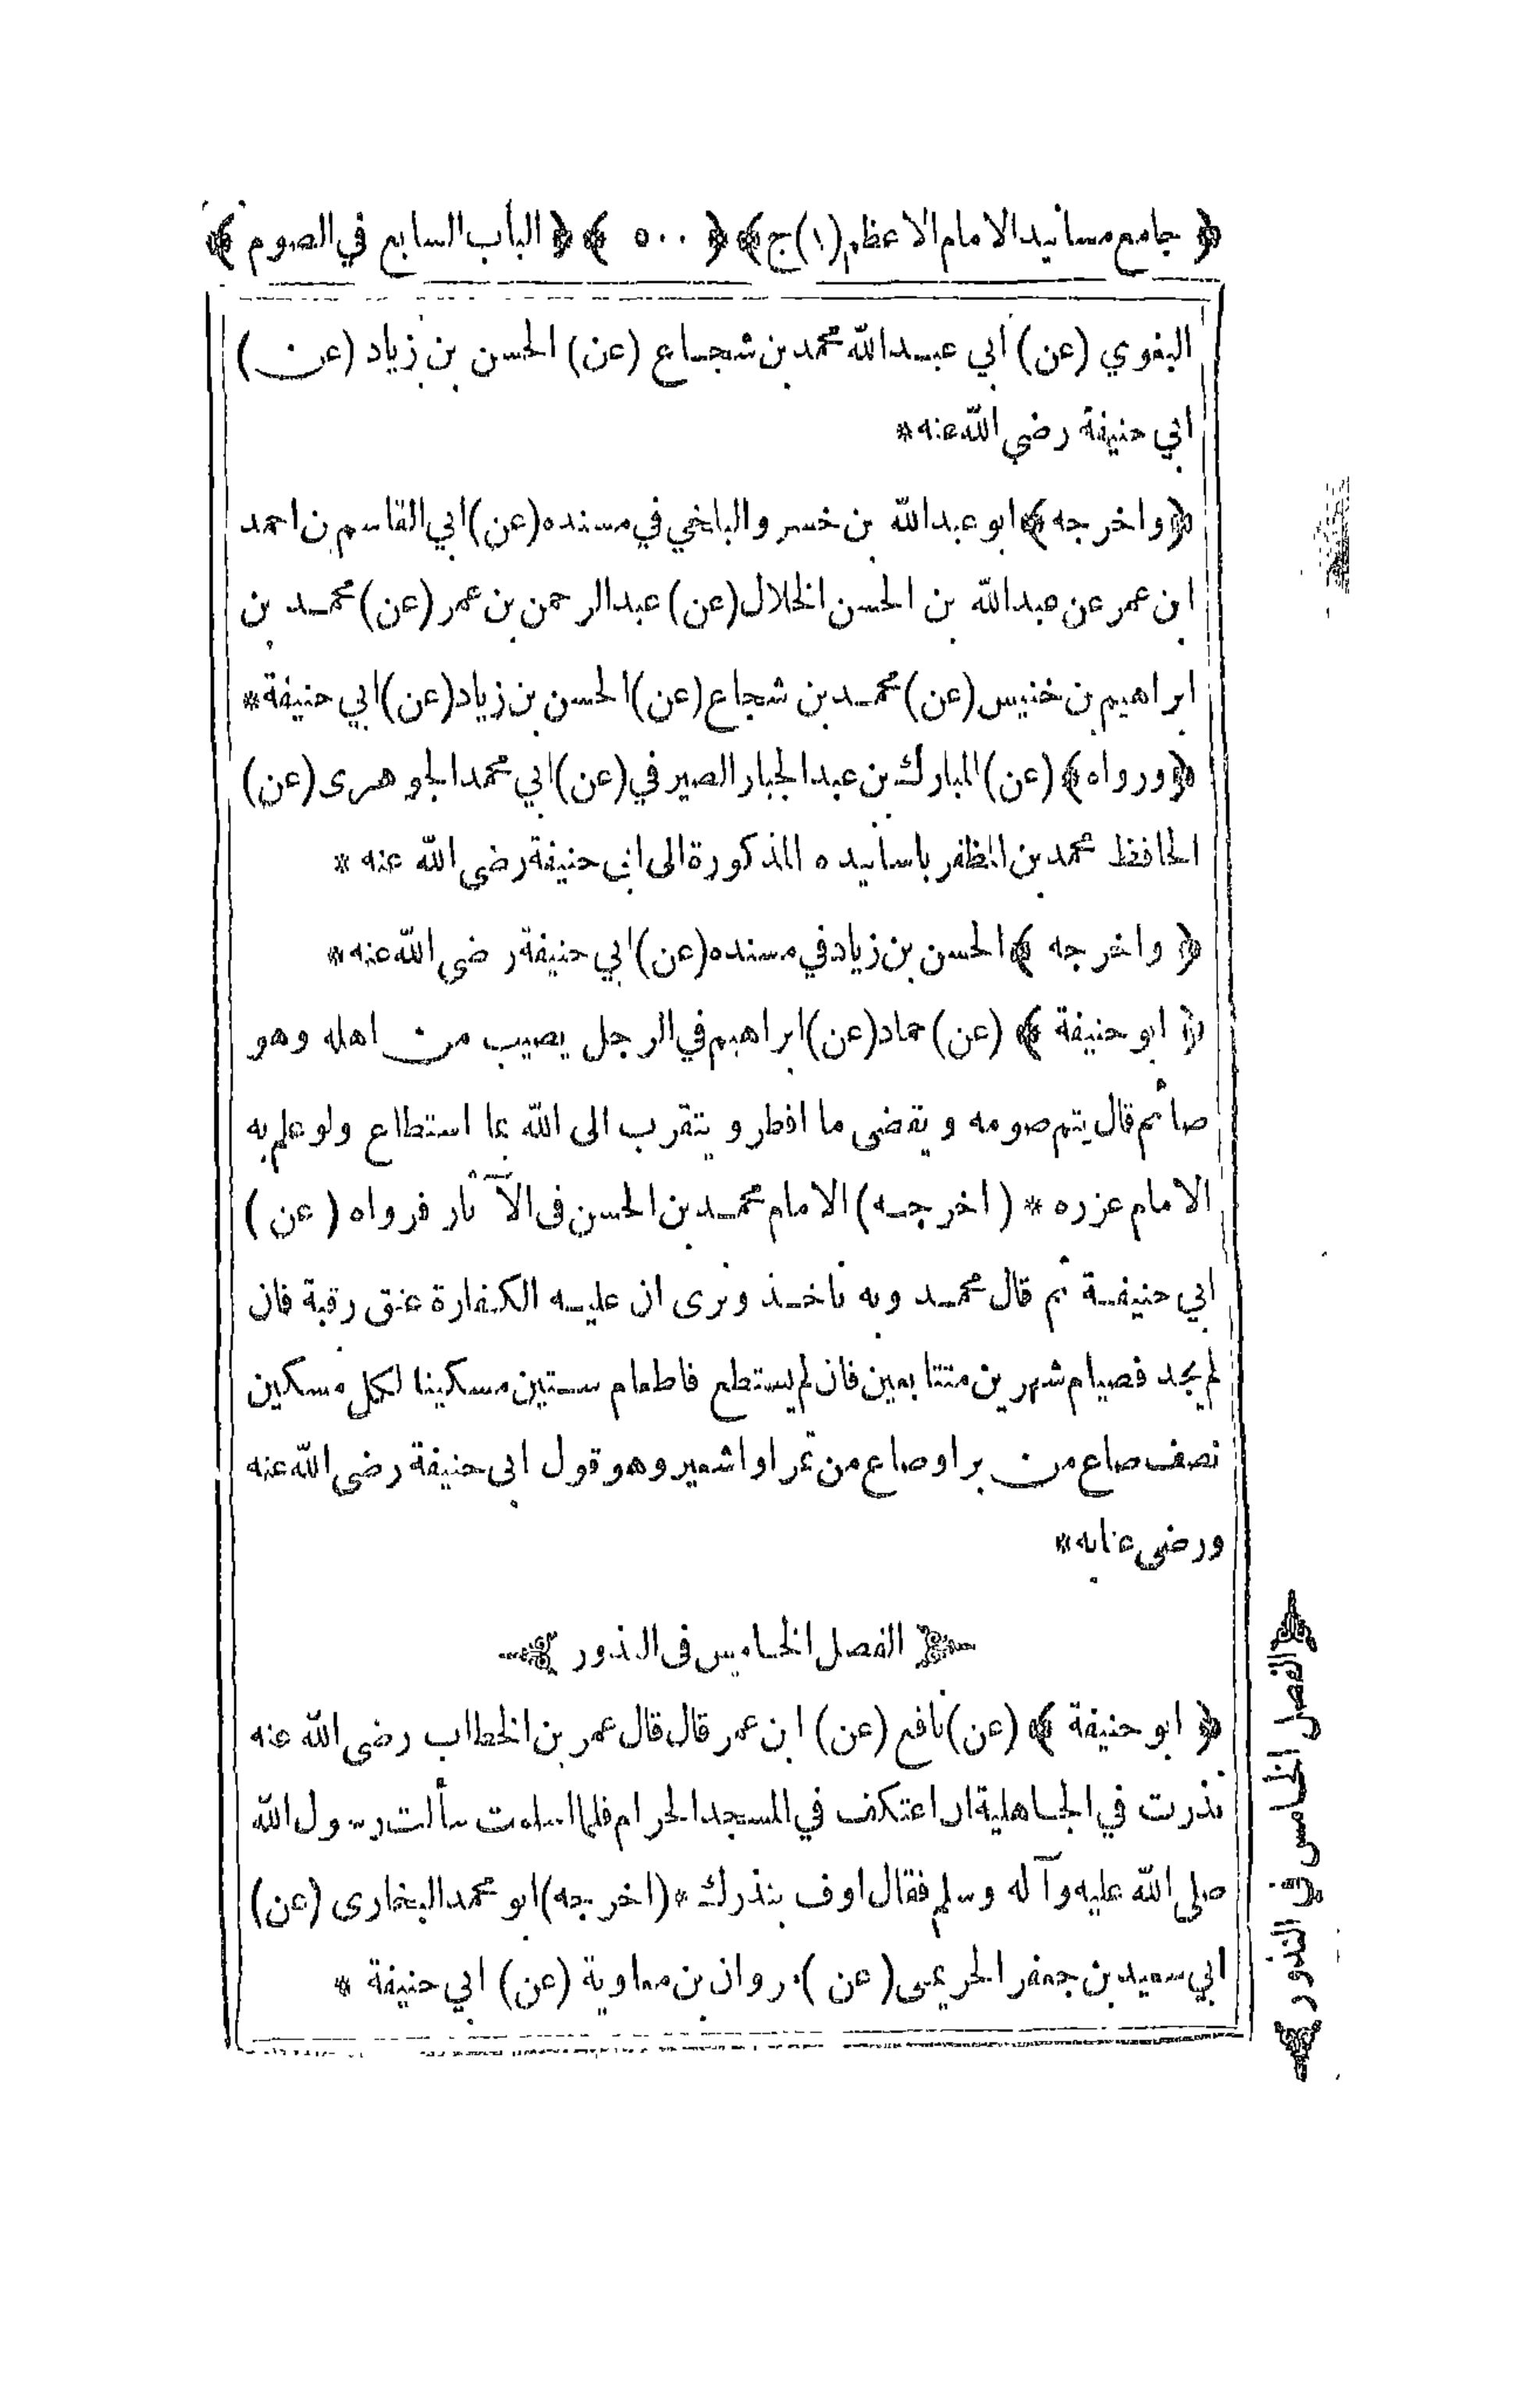 ﴿ جامع مسانيد الامام الاعظم (١) ج﴾ ﴿ ٥٠٠ ﴾ ﴿ الباب السابع في الصوم ﴾
البغوي (عن) ابي عبدالله محمد بن شجاع (عن) الحسن بن زياد (عن)
ابي حنيفة رضي الله عنه *
﴿واخرجه﴾ ابو عبدالله بن خسرو البلخي في مسنده (عن) ابي القاسم بن احمد
ابن عمر عن عبدالله بن الحسن الخلال (عن) عبدالرحمن بن عمر (عن) محمد بن
ابراهيم بن خنيس (عن) محمد بن شجاع (عن) الحسن بن زياد (عن) ابي حنيفة *
﴿ورواه﴾ (عن) المبارك بن عبدالجبار الصيرفي (عن) ابي محمد الجوهرى (عن)
الحافظ محمد بن المظفر باسانيده المذكورة الى ابى حنيفة رضى الله عنه *
﴿ واخرجه ﴾ الحسن بن زياد في مسنده (عن) ابي حنيفة رضى الله عنه *
﴿ ابو حنيفة ﴾ (عن) حماد (عن) ابراهيم في الرجل يصيب من اهله وهو
صائم قال يتم صومه و يقضى ما افطر و يتقرب الى الله بما استطاع ولو علم به
الامام عزره * (اخرجه) الامام محمد بن الحسن فى الآثار فرواه (عن)
ابي حنيفة ثم قال محمد وبه ناخذ ونرى ان عليه الكفارة عتق رقبة فان
لم يجد فصيام شهرين متتابعين فان لم يستطع فاطعام ستين مسكينا لكل مسكين
نصف صاع من بر او صاع من تمر او اشعير وهو قول ابى حنيفة رضى الله عنه
ورضى عنابه *
الفصل الخامس فى النذور
﴿ ابو حنيفة ﴾ (عن) نافع (عن) ابن عمر قال قال عمر بن الخطاب رضى الله عنه
نذرت في الجاهلية ان اعتكف في المسجد الحرام فلما اسلمت سألت رسول الله
صلى الله عليه وآله وسلم فقال اوف بنذرك * (اخرجه) ابو محمد البخارى (عن)
ابي سعيد بن جعفر (عن) مروان بن معاوية (عن) ابي حنيفة *
﴿الفصل الخامس في النذور﴾